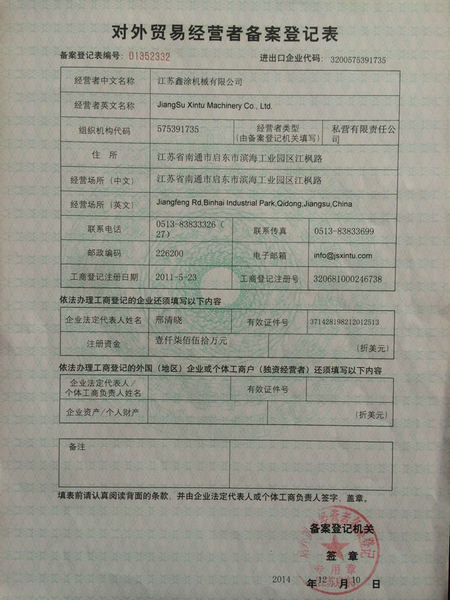 对外贸易经营者备案登记表
备案登记表编号: 01352332 进出口企业代码: 3200575391735
经营者中文名称 江苏鑫涂机械有限公司
经营者英文名称 JiangSu Xintu Machinery Co., Ltd.
组织机构代码 575391735 经营者类型 (由备案登记机关填写) 私营有限责任公司
住 所 江苏省南通市启东市滨海工业园区江枫路
经营场所（中文） 江苏省南通市启东市滨海工业园区江枫路
经营场所（英文） Jiangfeng Rd,Binhai Industrial Park,Qidong,Jiangsu,China
联系电话 0513-83833326(27) 联系传真 0513-83833699
邮政编码 226200 电子邮箱 info@jsxintu.com
工商登记注册日期 2011-5-23 工商登记注册号 320681000246738
依法办理工商登记的企业还须填写以下内容
企业法定代表人姓名 邢清晓 有效证件号 371428198212012513
注册资金 壹仟柒佰伍拾万元 (折美元)
依法办理工商登记的外国（地区）企业或个体工商户（独资经营者）还须填写以下内容
企业法定代表人/
个体工商负责人姓名 有效证件号
企业资产/个人财产 (折美元)
备注
填表前请认真阅读背面的条款，并由企业法定代表人或个体工商负责人签字、盖章。
备案登记机关
签 章
专用章
2014 年 12 月 10 日